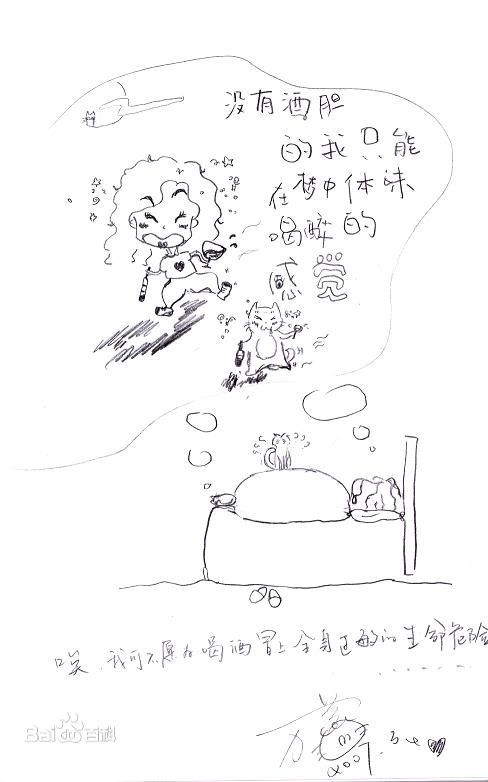 没有酒胆
的我只能
在梦中体味
喝醉的
感觉
唉，我可不愿为喝酒冒上全身过敏的生命危险
......
2007.
Bai百科